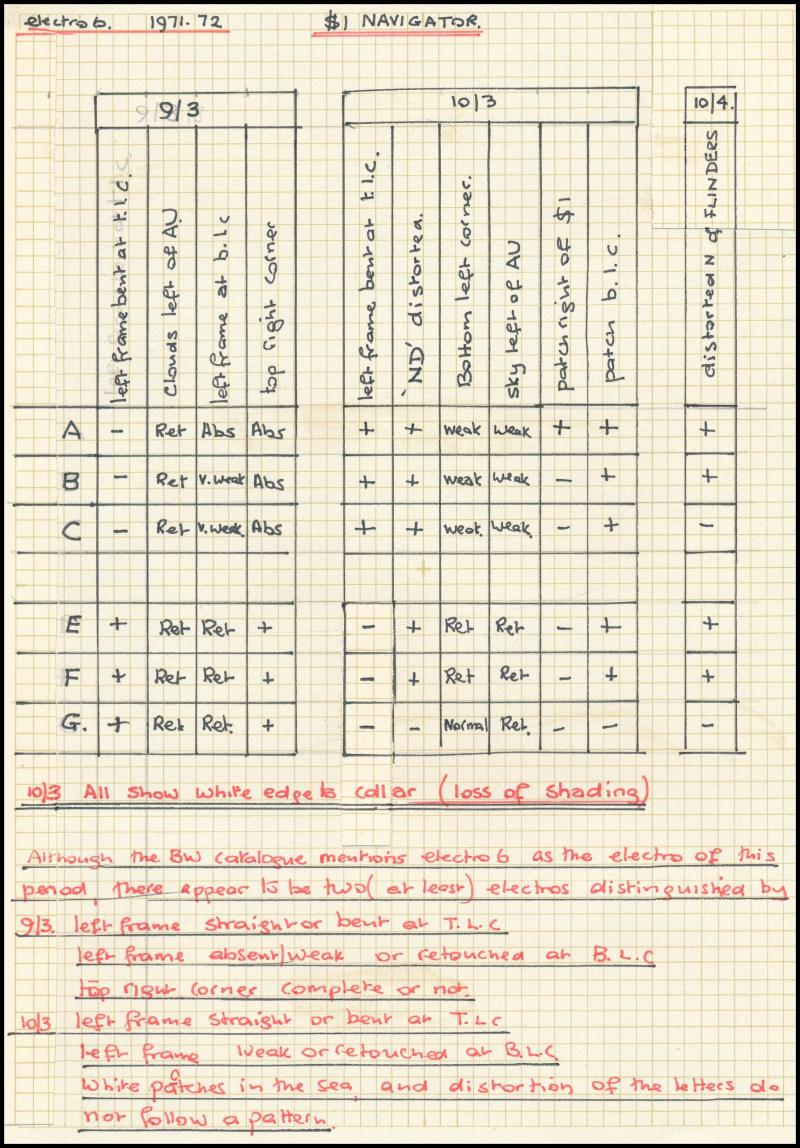 electro 6. 1971-72 $1 NAVIGATOR.
9/3 10/3 10/4.
left frame bent at t.l.c.
Clouds left of AU
left frame at b.l.c
top right corner
left frame bent at t.l.c.
'ND' distorted.
Bottom left corner.
sky left of AU
patch right of $1
patch b.l.c.
distorted N of FLINDERS
A - Ret Abs Abs + + weak weak + + +
B - Ret v.weak Abs + + weak weak - + +
C - Ret v.weak Abs + + weak. weak. - + -
E + Ret Ret + - + Ret Ret - + +
F + Ret Ret + - + Ret Ret - + +
G. + Ret Ret. + - - Normal Ret. - - -
10/3 All show white edge to collar (loss of shading)
Although the BW catalogue mentions electro 6 as the electro of this
period, there appear to be two (at least) electros distinguished by
9/3. left frame straight or bent at T.L.C
left frame absent/weak or retouched at B.L.C
top right corner complete or not.
10/3 left frame straight or bent at T.L.C
left frame weak or retouched at B.L.C.
White patches in the sea, and distortion of the letters do
not follow a pattern.